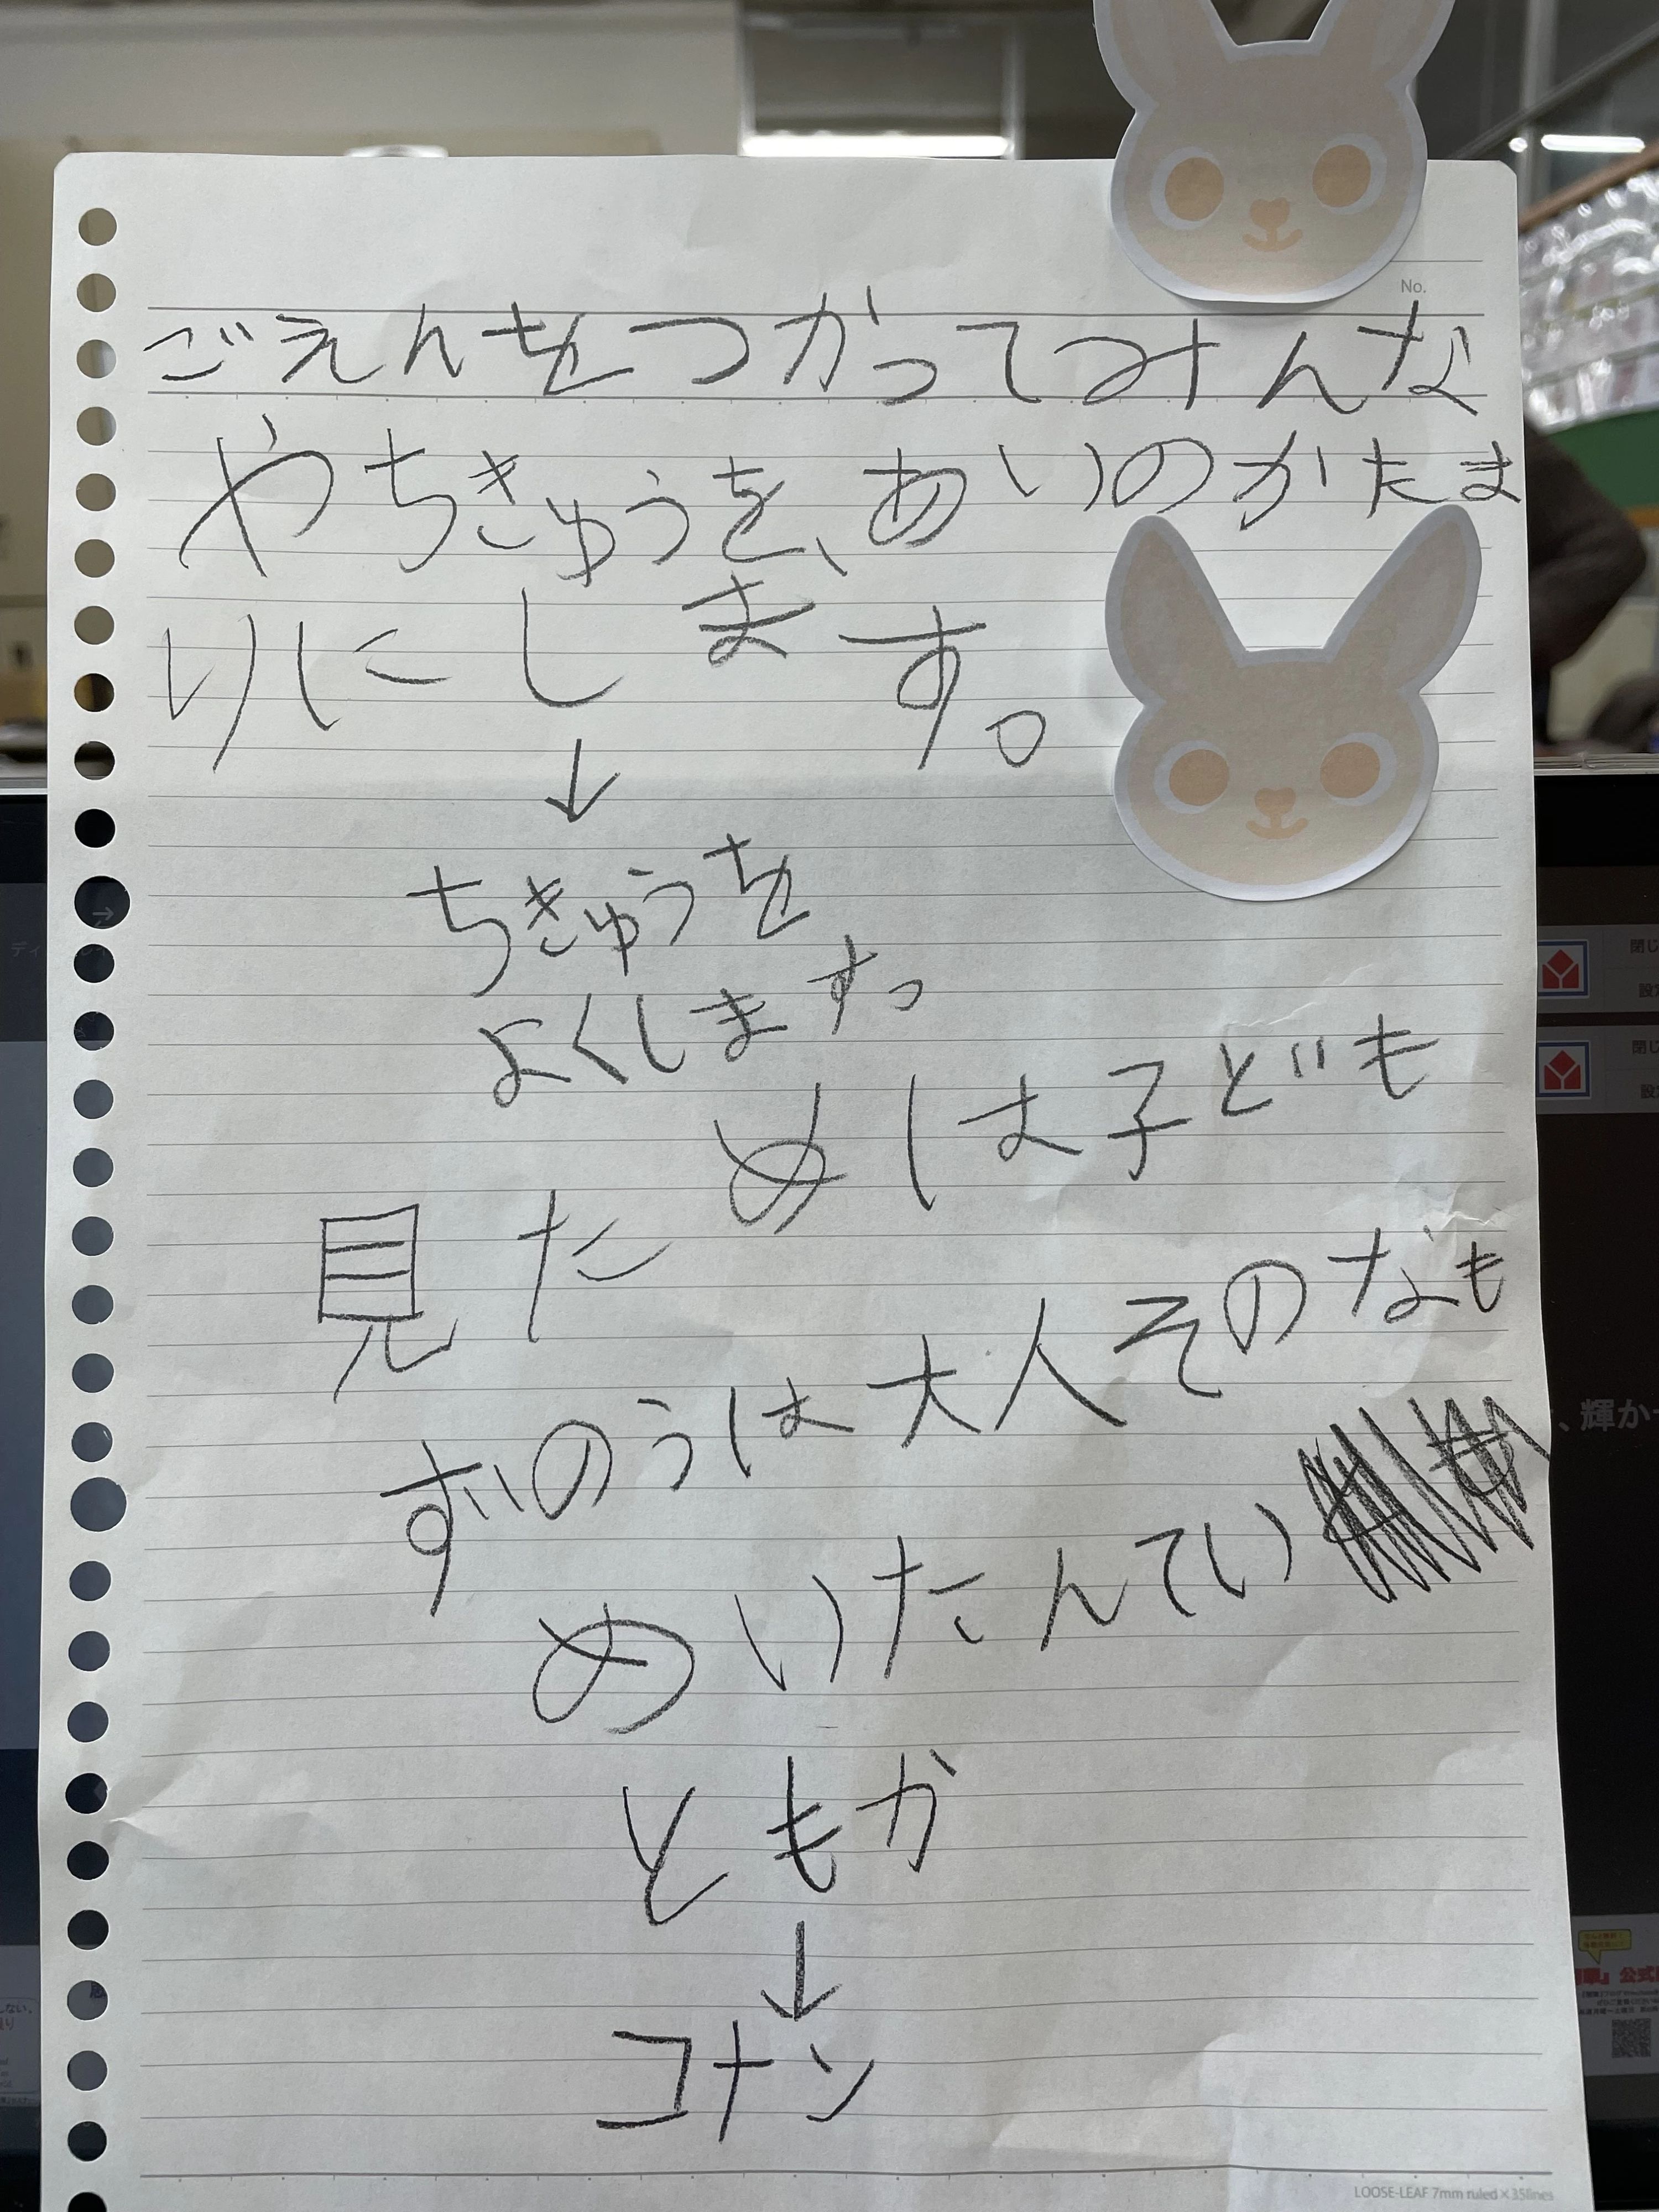 No.
ごえんをつかってみんな
やちきゅうを、あいのかたま
りにします。
↓
ちきゅうを
よくします。
見ためは子ども
ずのうは大人そのなも
めいたんてい
ともか
↓
コナン
LOOSE-LEAF 7mm ruled×35lines
閉じ
設定
閉じ
設定
、輝か
公式